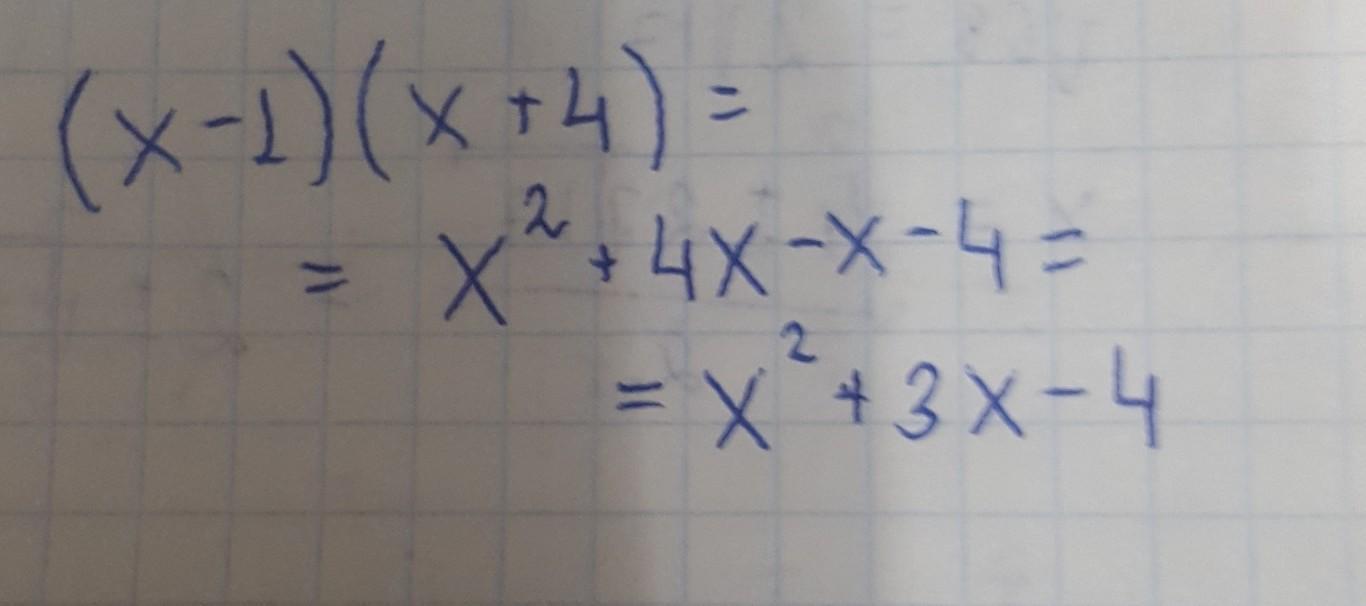 (x-1)(x+4)=
= x²+4x-x-4=
= x²+3x-4